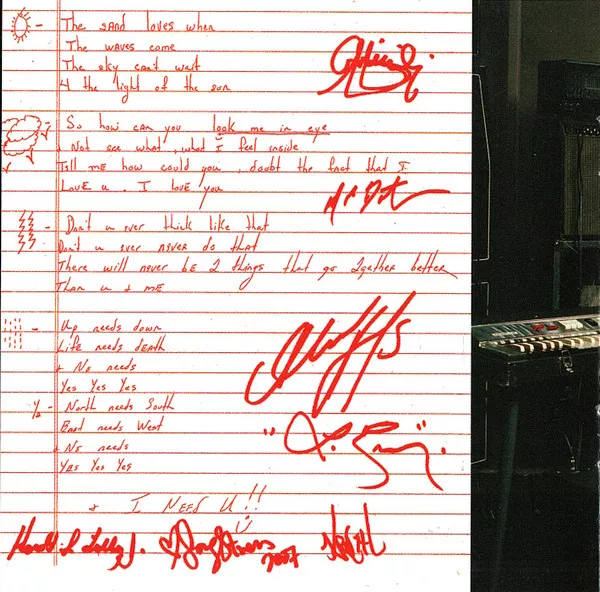 The sand loves when
The waves come
The sky can't wait
4 the light of the sun
So how can you look me in eye
+ Not see what, what I feel inside
Tell me how could you, doubt the fact that I
Love u. I love you
Don't u ever think like that
Don't u ever never do that
There will never be 2 things that go 2gether better
Than u + me
Up needs down
Life needs death
+ No needs
Yes Yes Yes
½ - North needs South
East needs West
+ No needs
Yes Yes Yes
+ I NEED U!!
2007